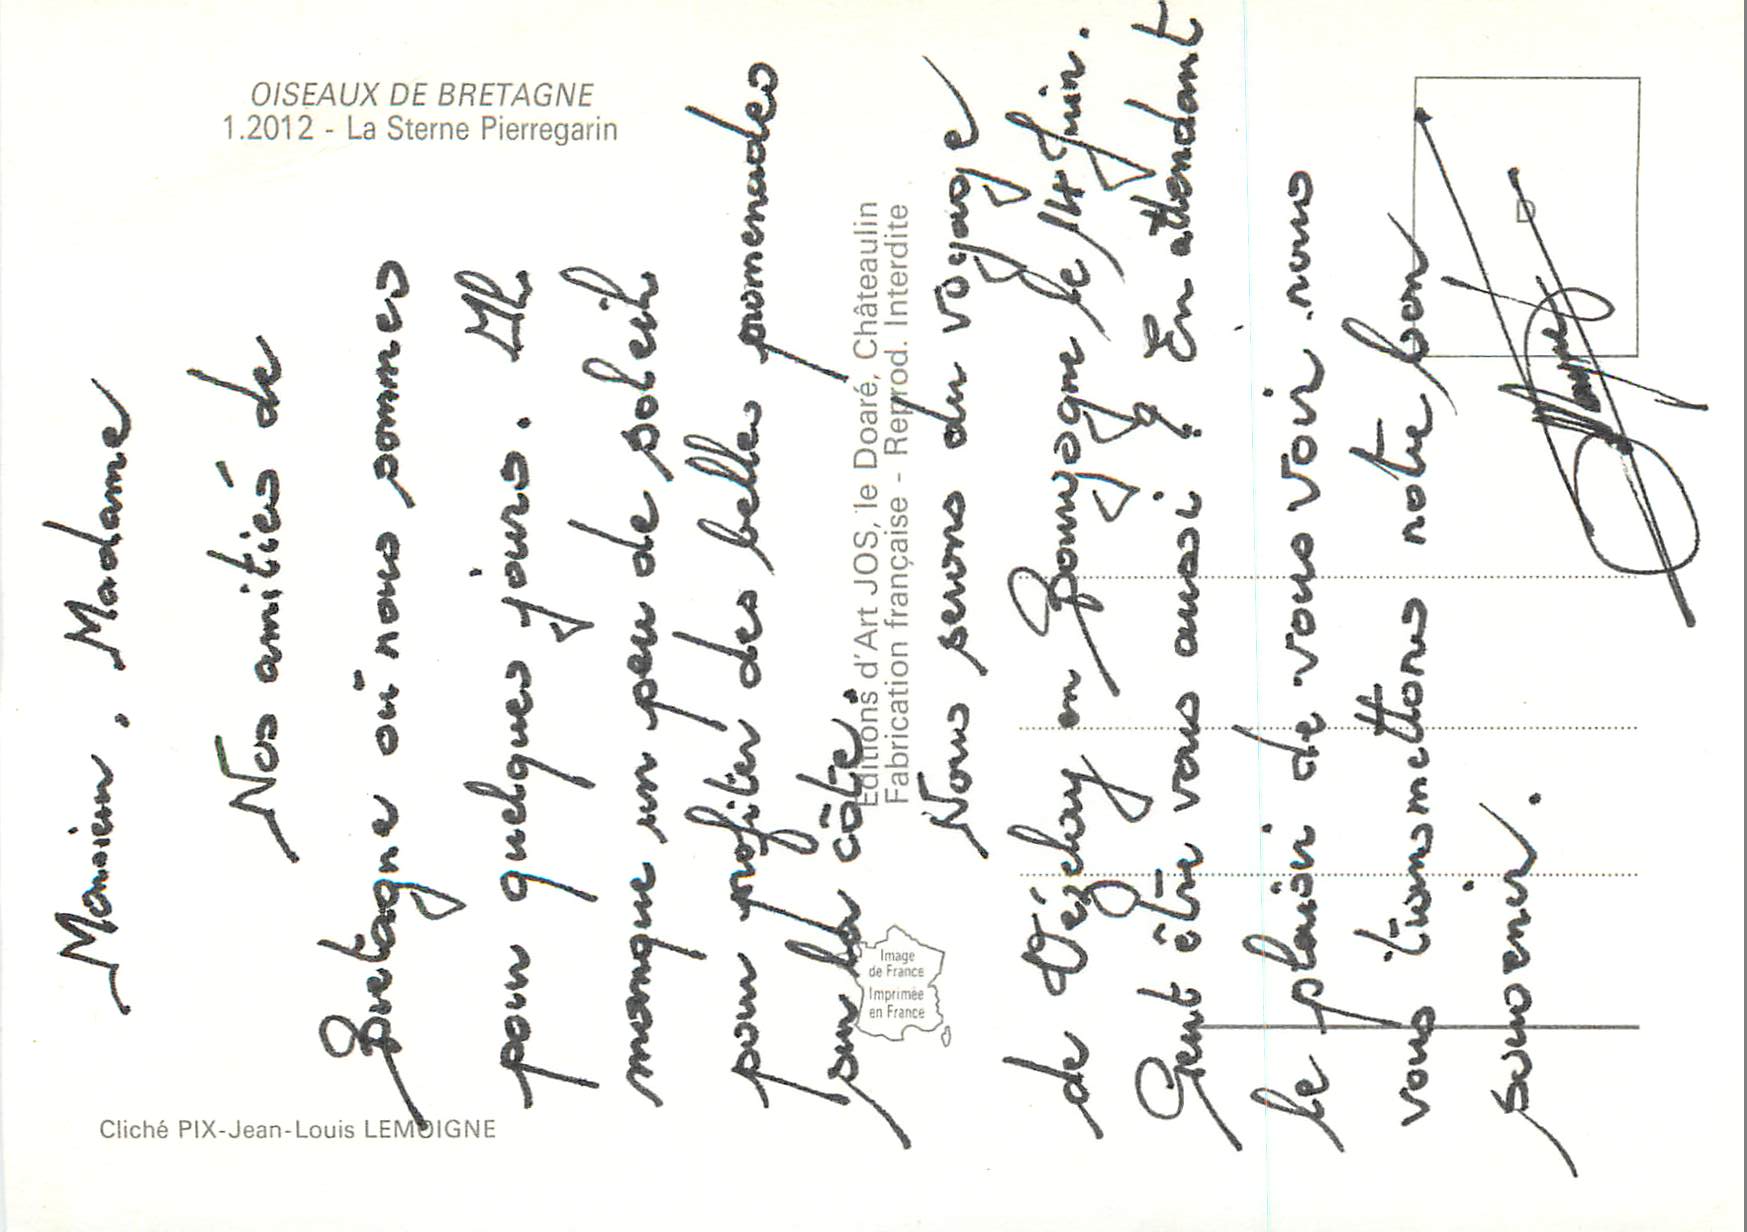 OISEAUX DE BRETAGNE
1.2012 - La Sterne Pierregarin
Cliché PIX-Jean-Louis LEMOIGNE
Editions d'Art JOS, le Doaré, Châteaulin
Fabrication française - Reprod. Interdite
Image
de France
Imprimée
en France
D
Monsieur, Madame
Nos amitiés de
Bretagne où nous sommes
pour quelques jours. Il
manque un peu de soleil
pour profiter des belles promenades
sur la côte.
Nous serons du voyage
de Vézelay en Bourgogne le 14 Juin.
Peut être vous aussi ? En attendant
le plaisir de vous voir, nous
vous transmettons notre bon
souvenir.